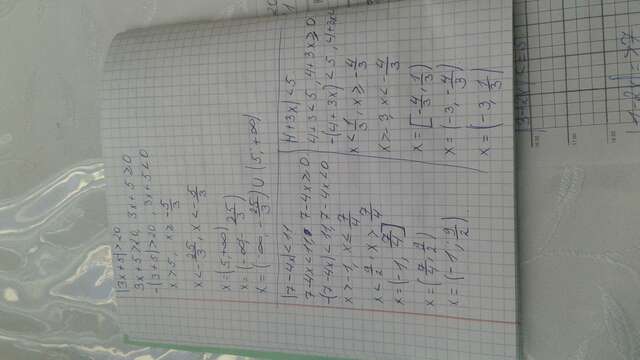 |3x+5|>20
3x+5>20, 3x+5≥0
-(3+5)>20, 3x+5<0
x>5, x≥-5/3
x<-25/3, x<-5/3
x=(5,+∞)
x=(-∞,-25/3)
x=(-∞,-25/3)∪(5,+∞)
|7-4x|<11
7-4x<11, 7-4x≥0
-(7-4x)<11, 7-4x<0
x>-1, x≤7/4
x<9/2, x>7/4
x=(-1,7/4]
x=(7/4,9/2)
x=(-1,9/2)
|4+3x|<5
4+3<5, 4+3x≥0
-(4+3x)<5, 4+3x<
x<1/3, x≥-4/3
x>-3, x<-4/3
x=[-4/3,1/3)
x=(-3,-4/3)
x=(-3,1/3)